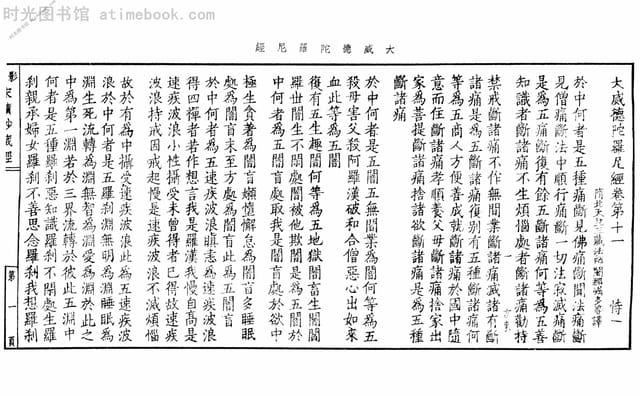 时光图书馆 atimebook.com
大威德陀羅尼經
大威德陀羅尼經卷第十一 恃一
隋北天竺三藏法師闍那崛多等譯
於中何者是五種痛斷見佛痛斷聞法痛斷
見僧痛斷法中順行痛斷一切法寂滅痛斷
是為五痛斷復有餘五斷諸痛何等為五善
知識者斷諸痛不生煩惱處者斷諸痛勸持
禁戒斷諸痛不作無間業斷諸痛滅諸有斷
諸痛是為五斷諸痛復別有五種斷諸痛何
等為五商人方便善成就斷諸痛於國中隨
意而住斷諸痛孝順養父母斷諸痛捨家出
家為菩提斷諸痛捨諸欲斷諸痛是為五種
斷諸痛
於中何者是五闇五無間業為闇何等為五
殺母害父殺阿羅漢破和合僧惡心出如來
血此等為五闇
復有五生趣闇何等為五地獄闇畜生闇閻
羅世闇生不閑處闇被他欺闇是為五闇於
中何者為五闇盲處取我是我闇盲處於欲中
極生貪著為闇盲嬾惰懈怠為闇盲多睡眠
處為闇盲未至方處為闇盲此為五闇盲
於中何者為五速疾波浪瞋恚為速疾波浪
得四禪者若作想言我是羅漢我慢自高是
速疾波浪小性攝受未曾得者已得故速疾
波浪持戒因戒起慢是速疾波浪不滅煩惱
故於有為中攝受速疾波浪此為五速疾波
浪於中何者是五淵無明為淵睡眠為
淵生死流轉為淵無智為淵愛為淵於此之
中為第一淵若於三界流轉於彼此五淵中
何者是五種羅剎惡知識羅剎不閑處生羅
剎親承婦女羅剎不善思念羅剎我想羅剎
影宋磧砂藏經
第一頁